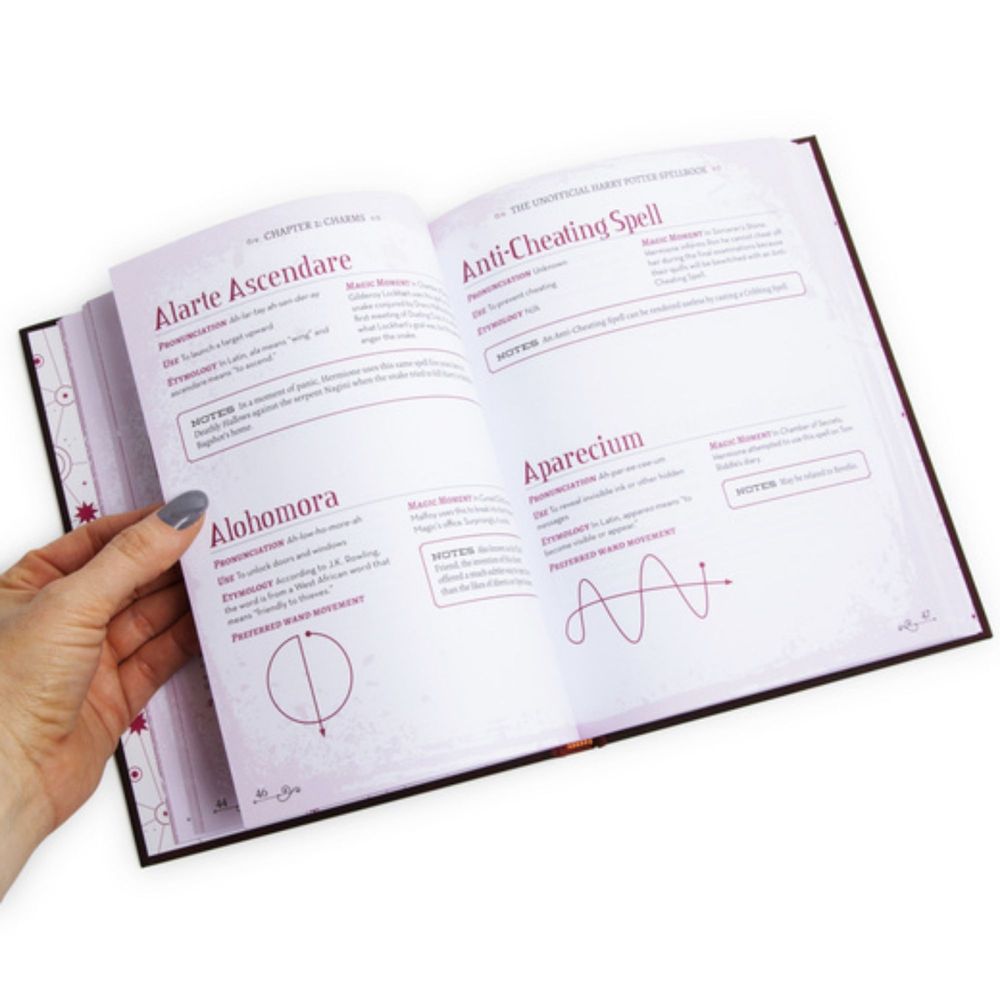 CHAPTER 1: CHARMS
Alarte Ascendare
PRONUNCIATION Ah-lar-tay ah-sen-der-ay
USE To launch a target upward
ETYMOLOGY In Latin, ala means "wing" and
ascendare means "to ascend."
MAGIC MOMENT In
Gilderoy Lockhart uses this
snake conjured by Draco
first meeting of Dueling
what Lockhart's goal was, but
anger the snake.
NOTES In a moment of panic, Hermione uses this same spell
Deathly Hallows against the serpent Nagini when the snake tried to
Bagshot's home.
Alohomora
PRONUNCIATION Ah-low-ho-more-ah
USE To unlock doors and windows
ETYMOLOGY According to J.K. Rowling,
the word is from a West African word that
means "friendly to thieves."
PREFERRED WAND MOVEMENT
MAGIC MOMENT In Cursed
Malfoy uses this to break into
Magic's office. Surprisingly, it
NOTES Also known as
Friend, the invention of this
offered a much subtler way to
than the likes of
44
46
THE UNOFFICIAL HARRY POTTER SPELLBOOK
Anti-Cheating Spell
PRONUNCIATION Unknown
USE To prevent cheating
ETYMOLOGY N/A
MAGIC MOMENT In Sorcerer's Stone,
Hermione informs Ron he cannot cheat off
her during the final examinations because
their quills will be bewitched with an Anti-
Cheating Spell.
NOTES An Anti-Cheating Spell can be rendered useless by casting a Cribbing Spell.
Aparecium
PRONUNCIATION Ah-par-ee-cee-um
USE To reveal invisible ink or other hidden
messages
ETYMOLOGY In Latin, appareo means "to
become visible or appear."
PREFERRED WAND MOVEMENT
MAGIC MOMENT In Chamber of Secrets,
Hermione attempted to use this spell on Tom
Riddle's diary.
NOTES May be related to Revelio.
47